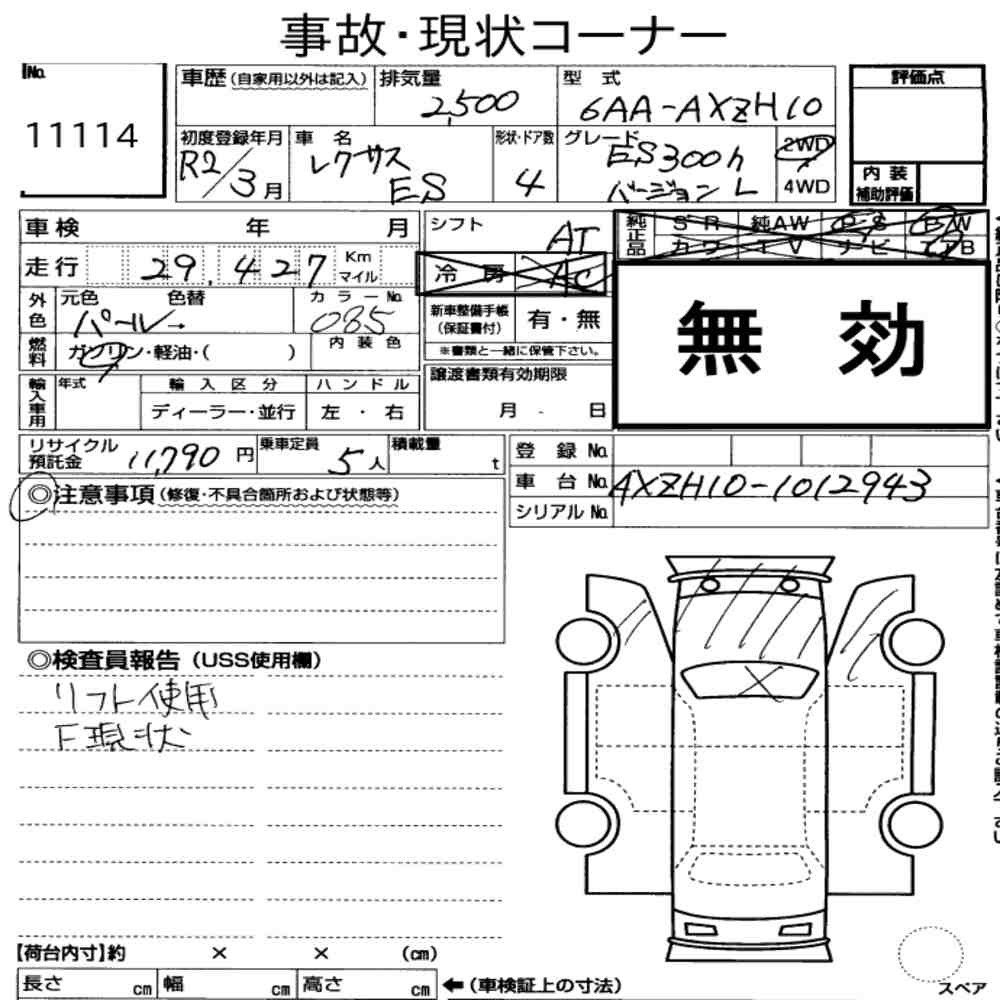 事故・現状コーナー
No.
11114
車歴(自家用以外は記入)
排気量
2,500
型 式
6AA-AXZH10
評価点
初度登録年月
R2/3月
車 名
レクサス
ES
形状・ドア数
4
グレード
ES300h
バージョン L
2WD
4WD
内 装
補助評価
車検 年 月
走行 29,427 Km
マイル
シフト
AT
冷 房 AC
純正品
S R 純AW P.S P.W
カワ T V ナビ エアB
外色
元色 色替
パール→
カラーNo.
085
燃料
ガソリン・軽油・( )
内 装 色
新車整備手帳
(保証書付)
有・無
※書類と一緒に保管下さい。
無 効
輸入車用
年式
輸 入 区 分
ディーラー・並行
ハ ン ド ル
左 ・ 右
譲渡書類有効期限
月 日
リサイクル
預託金 11,790 円
乗車定員
5人
積載量
t
登 録 No.
車 台 No. AXZH10-1012943
シリアル No.
◎注意事項(修復・不具合箇所および状態等)
◎検査員報告(USS使用欄)
リフト使用
F現状
【荷台内寸】約 × × (cm)
長さ cm 幅 cm 高さ cm ←(車検証上の寸法)
スペア